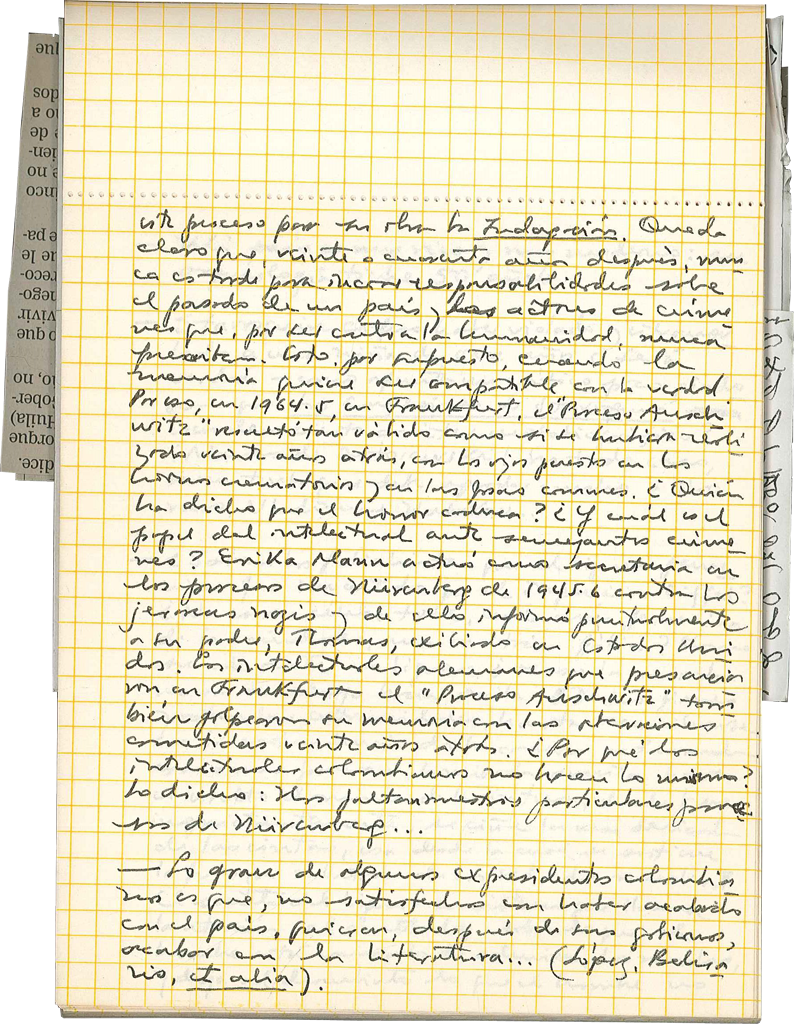 este proceso para su obra La Indagación. Queda
claro que, veinte o cuarenta años después, nun
ca es tarde para incoar responsabilidades sobre
el pasado de un país y los actores de críme
nes que, por ser contra la humanidad, nunca
prescriben. Esto, por supuesto, cuando la
memoria quiere ser compatible con la verdad.
Por eso, en 1964.5, en Frankfurt, el "Proceso Ausch
witz" resultó tan válido como si se hubiera reali
zado veinte años atrás, con los ojos puesto en los
hornos crematorios y en las fosas comunes. ¿Quién
ha dicho que el honor caduca? ¿Y cuál es el
papel del intelectual ante semejantes críme
nes? Erika Mann actuó como secretaria en
los procesos de Nürenberg de 1945.6 contra los
jerarcas nazis y de ello informó puntualmente
a su padre, Thomas, exiliado en Estados Uni
dos. Los intelectuales alemanes que presencia
ron en Frankfurt el "Proceso Auschwitz" tam
bién golpearon su memoria con las atrocidades
cometidas veinte años atrás. ¿Por qué los
intelectuales colombianos no hacen lo mismo?
Lo dicho: Nos faltan nuestros particulares proce
sos de Nürenberg...
— Lo grave de algunos expresidentes colombia
nos es que, no satisfechos con haber acabado
con el país, quieren, después de sus gobiernos,
acabar con la literatura... (López, Belisa
rio, et alia).
que
dos
no a
e de
ien-
e no
inco
e pa-
ue le
reco-
nego-
vivir
o que
io, no
Gober-
(Huila)
orque
dice.